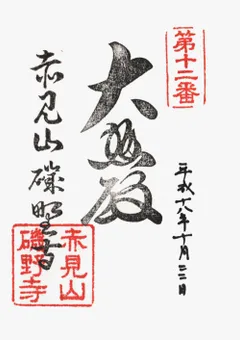 第十二番
平成十八年十月二二日
大悲殿
赤見山 磯野寺
赤見山
磯野寺